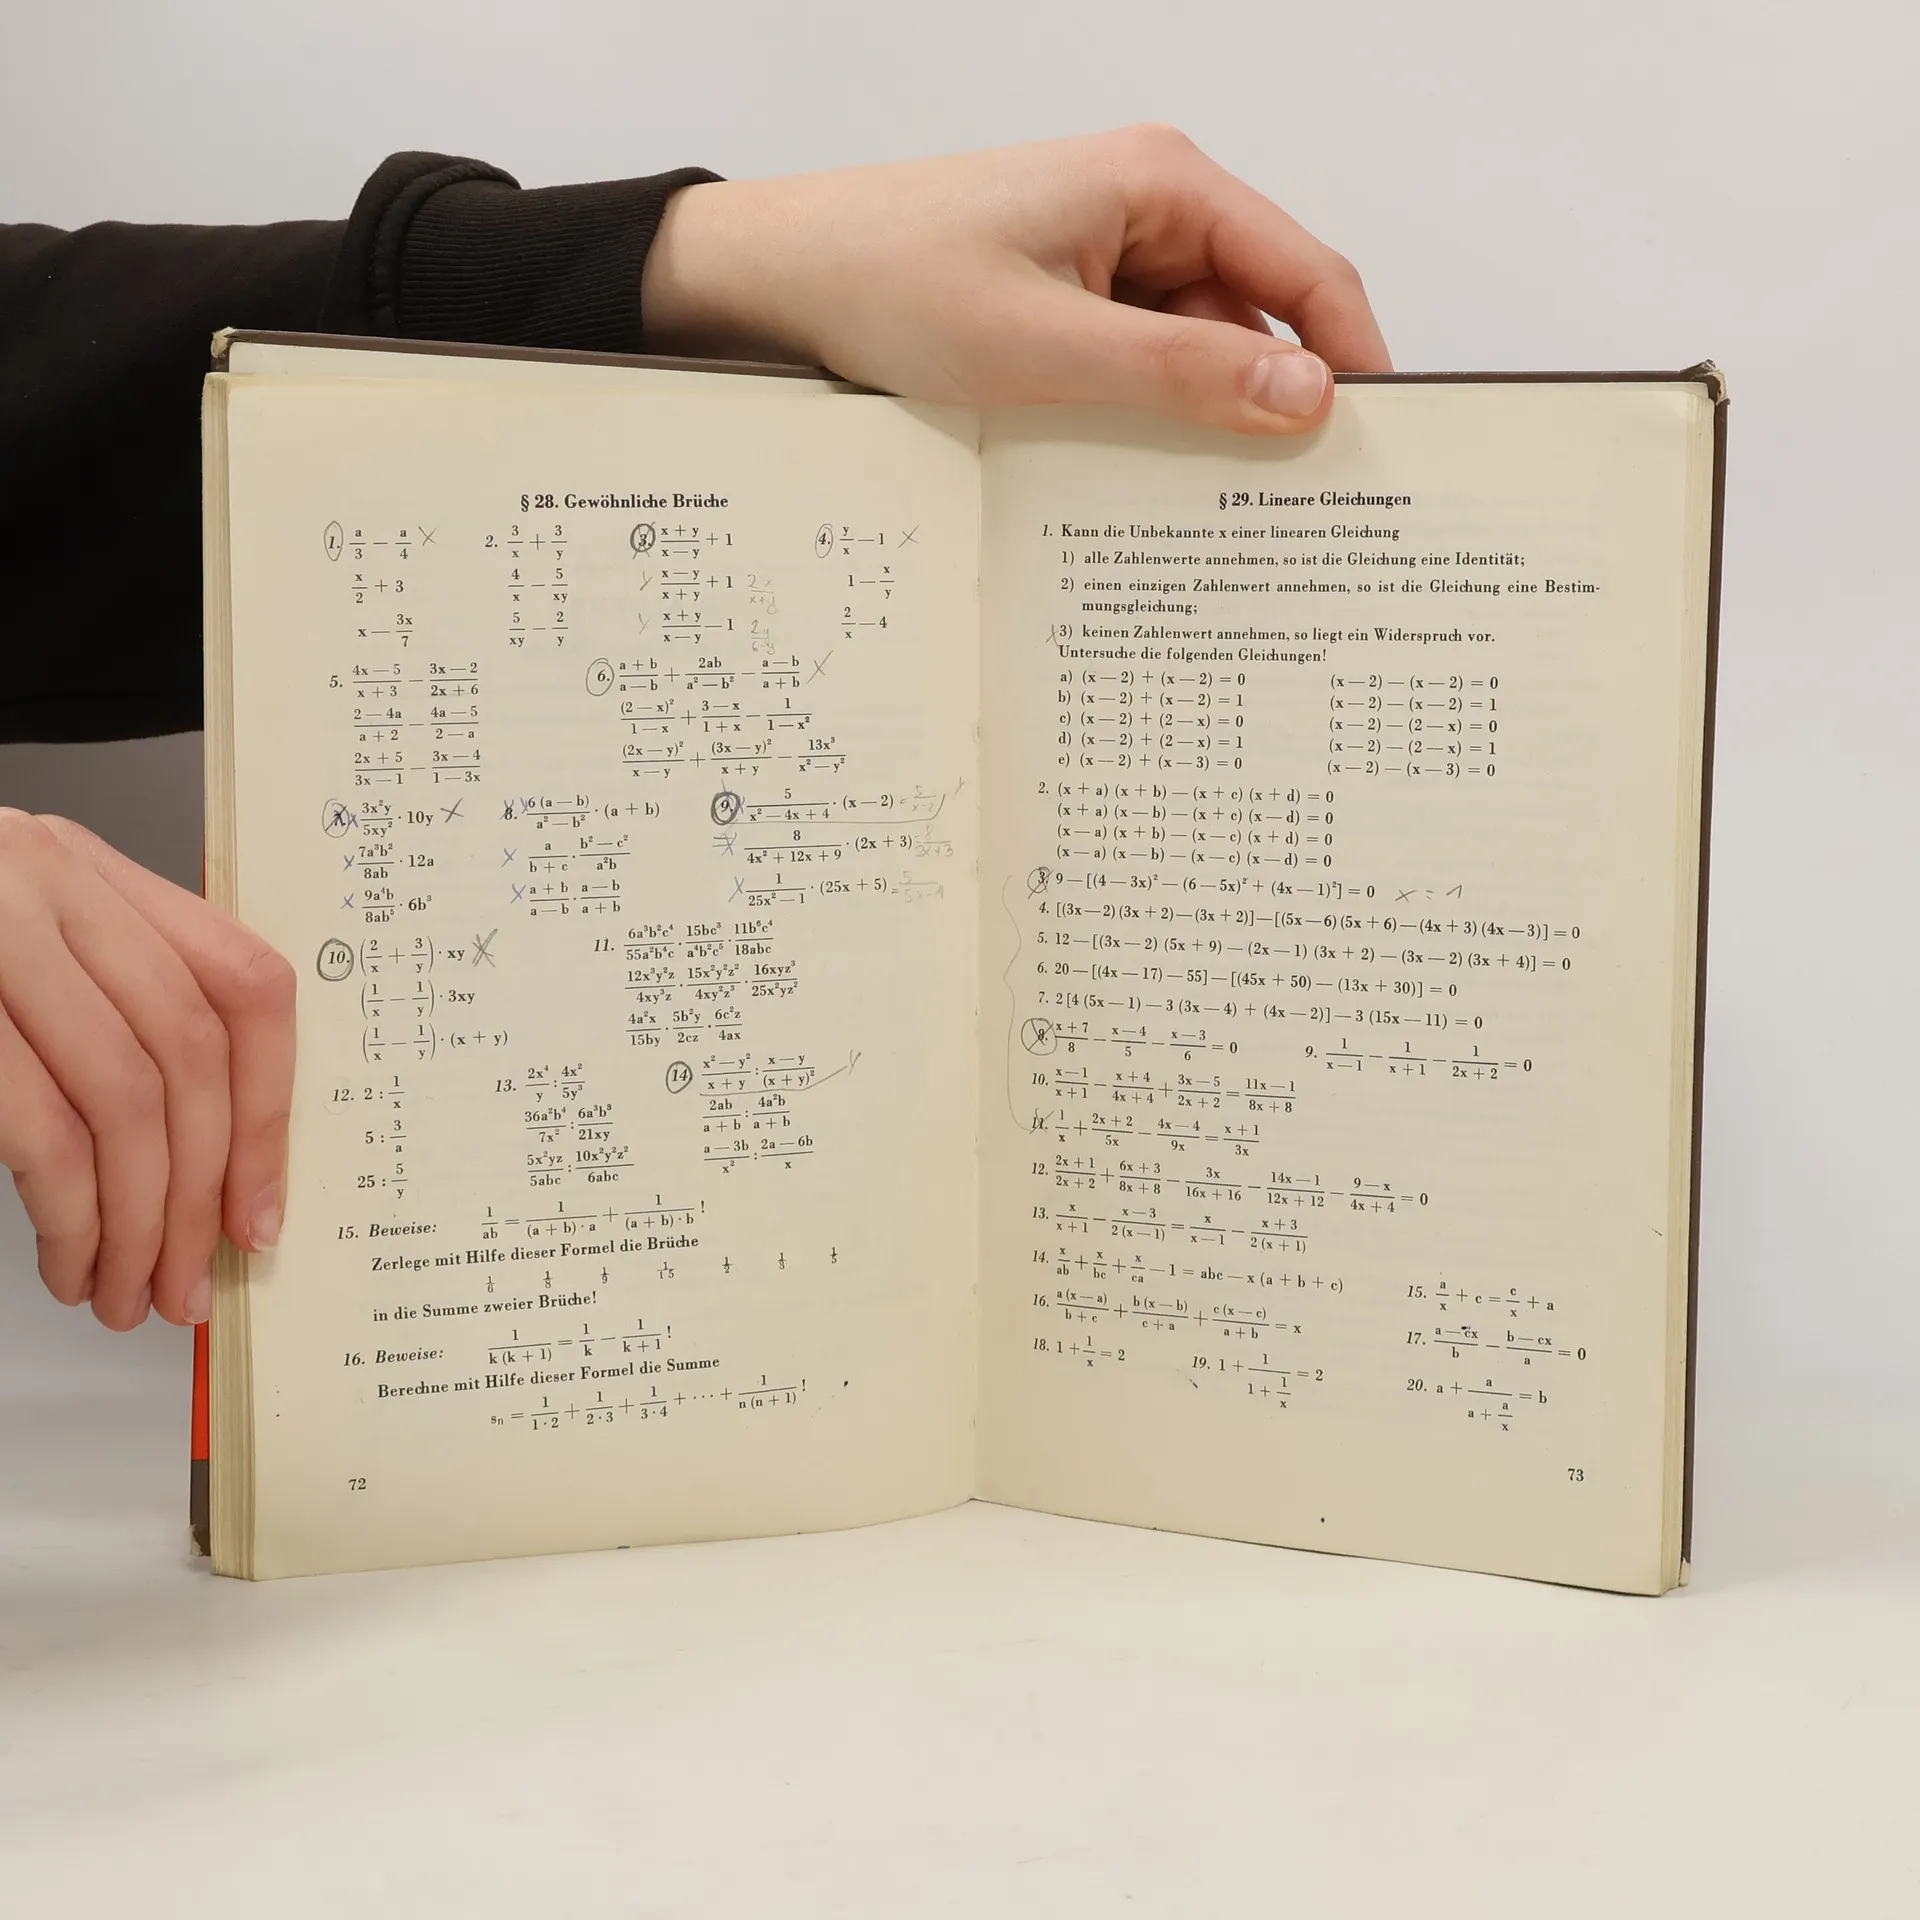 § 28. Gewöhnliche Brüche
1. a/3 — a/4 2. 3/x + 3/y 3. (x + y)/(x — y) + 1 4. y/x — 1
x/2 + 3 4/x — 5/xy (x — y)/(x + y) + 1 1 — x/y
x — 3x/7 5/xy — 2/y (x + y)/(x — y) — 1 2/x — 4
5. (4x — 5)/(x + 3) — (3x — 2)/(2x + 6) 6. (a + b)/(a — b) + 2ab/(a² — b²) — (a — b)/(a + b)
(2 — 4a)/(a + 2) — (4a — 5)/(2 — a) (2 — x)²/(1 — x) + (3 — x)/(1 + x) — 1/(1 — x²)
(2x + 5)/(3x — 1) — (3x — 4)/(1 — 3x) (2x — y)²/(x — y) + (3x — y)²/(x + y) — 13x³/(x² — y²)
7. 3x²y/5xy² · 10y 8. 6 (a — b)/(a² — b²) · (a + b) 9. 5/(x² — 4x + 4) · (x — 2) = 5/(x-2)
7a³b²/8ab · 12a a/(b + c) · (b² — c²)/a²b 8/(4x² + 12x + 9) · (2x + 3)
9a⁴b/8ab⁵ · 6b³ (a + b)/(a — b) · (a — b)/(a + b) 1/(25x² — 1) · (25x + 5) = 5/(5x-1)
10. (2/x + 3/y) · xy 11. 6a³b²c⁴/55a²b⁴c · 15bc³/a⁴b²c⁵ · 11b⁶c⁴/18abc
(1/x — 1/y) · 3xy 12x³y²z/4xy³z · 15x²y²z²/4xy²z³ · 16xyz³/25x²yz²
(1/x — 1/y) · (x + y) 4a²x/15by · 5b²y/2cz · 6c²z/4ax
12. 2 : 1/x 13. 2x⁴/y : 4x²/5y³ 14. (x² — y²)/(x + y) : (x — y)/(x + y)²
5 : 3/a 36a²b⁴/7x² : 6a³b³/21xy 2ab/(a + b) : 4a²b/(a + b)
25 : 5/y 5x²yz/5abc : 10x²y²z²/6abc (a — 3b)/x² : (2a — 6b)/x
15. Beweise: 1/ab = 1/((a + b) · a) + 1/((a + b) · b) !
Zerlege mit Hilfe dieser Formel die Brüche
1/6 1/8 1/9 1/15 1/2 1/3 1/5
in die Summe zweier Brüche!
16. Beweise: 1/(k (k + 1)) = 1/k — 1/(k + 1) !
Berechne mit Hilfe dieser Formel die Summe
sn = 1/(1 · 2) + 1/(2 · 3) + 1/(3 · 4) + · · · + 1/(n (n + 1)) !
72
§ 29. Lineare Gleichungen
1. Kann die Unbekannte x einer linearen Gleichung
1) alle Zahlenwerte annehmen, so ist die Gleichung eine Identität;
2) einen einzigen Zahlenwert annehmen, so ist die Gleichung eine Bestim-
mungsgleichung;
3) keinen Zahlenwert annehmen, so liegt ein Widerspruch vor.
Untersuche die folgenden Gleichungen!
a) (x — 2) + (x — 2) = 0 (x — 2) — (x — 2) = 0
b) (x — 2) + (x — 2) = 1 (x — 2) — (x — 2) = 1
c) (x — 2) + (2 — x) = 0 (x — 2) — (2 — x) = 0
d) (x — 2) + (2 — x) = 1 (x — 2) — (2 — x) = 1
e) (x — 2) + (x — 3) = 0 (x — 2) — (x — 3) = 0
2. (x + a) (x + b) — (x + c) (x + d) = 0
(x + a) (x — b) — (x + c) (x — d) = 0
(x — a) (x + b) — (x — c) (x + d) = 0
(x — a) (x — b) — (x — c) (x — d) = 0
3. 9 — [(4 — 3x)² — (6 — 5x)² + (4x — 1)²] = 0 x = 1
4. [(3x — 2) (3x + 2) — (3x + 2)] — [(5x — 6) (5x + 6) — (4x + 3) (4x — 3)] = 0
5. 12 — [(3x — 2) (5x + 9) — (2x — 1) (3x + 2) — (3x — 2) (3x + 4)] = 0
6. 20 — [(4x — 17) — 55] — [(45x + 50) — (13x + 30)] = 0
7. 2 [4 (5x — 1) — 3 (3x — 4) + (4x — 2)] — 3 (15x — 11) = 0
8. (x + 7)/8 — (x — 4)/5 — (x — 3)/6 = 0 9. 1/(x — 1) — 1/(x + 1) — 1/(2x + 2) = 0
10. (x — 1)/(x + 1) — (x + 4)/(4x + 4) + (3x — 5)/(2x + 2) = (11x — 1)/(8x + 8)
11. 1/x + (2x + 2)/5x — (4x — 4)/9x = (x + 1)/3x
12. (2x + 1)/(2x + 2) + (6x + 3)/(8x + 8) — 3x/(16x + 16) — (14x — 1)/(12x + 12) — (9 — x)/(4x + 4) = 0
13. x/(x + 1) — (x — 3)/(2 (x — 1)) = x/(x — 1) — (x + 3)/(2 (x + 1))
14. x/ab + x/bc + x/ca — 1 = abc — x (a + b + c) 15. a/x + c = c/x + a
16. a (x — a)/(b + c) + b (x — b)/(c + a) + c (x — c)/(a + b) = x 17. (a — cx)/b — (b — cx)/a = 0
18. 1 + 1/x = 2 19. 1 + 1/(1 + 1/x) = 2 20. a + a/(a + a/x) = b
73